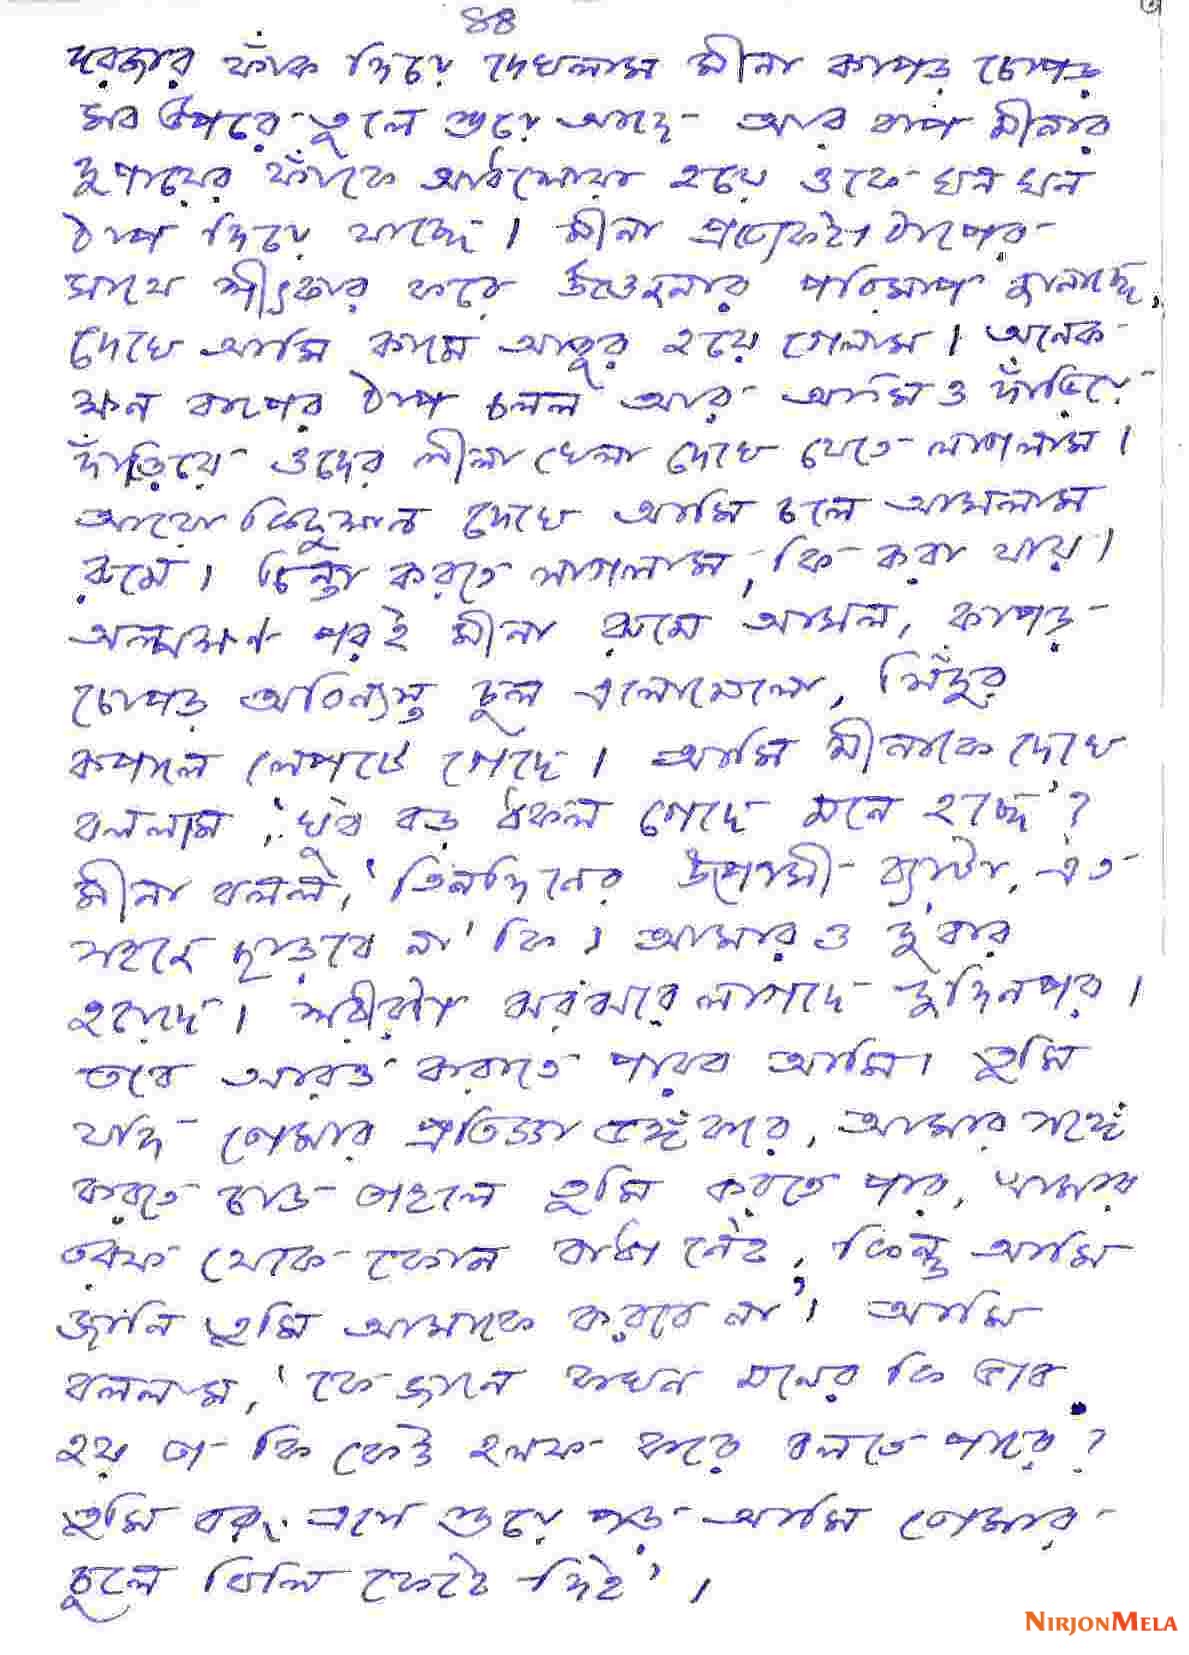 ৪৪
দরজার ফাঁক দিয়ে দেখলাম মীনা কাপড় চোপড়
সব উপরে তুলে শুয়ে আছে আর বাপ মীনার
দুপায়ের ফাঁকে আধশোয়া হয়ে ওকে ঘন ঘন
ঠাপ দিয়ে যাচ্ছে। মীনা প্রত্যেকটা ঠাপের
সাথে শীৎকার করে উত্তেজনার পরিমাপ জানাচ্ছে,
দেখে আমি কামে আতুর হয়ে গেলাম। অনেক
ক্ষন বাপের ঠাপ চলল আর আমিও দাঁড়িয়ে
দাঁড়িয়ে ওদের লীলা খেলা দেখে যেতে লাগলাম।
আরো কিছুক্ষন দেখে আমি চলে আসলাম
রুমে। চিন্তা করতে লাগলাম, কি করা যায়।
অল্পক্ষণ পরই মীনা রুমে আসল, কাপড়
চোপড় অবিন্যস্ত চুল এলোমেলো, সিঁদুর
কপালে লেপটে গেছে। আমি মীনাকে দেখে
বললাম, 'খুব বড় ধকল গেছে মনে হচ্ছে'?
মীনা বলল, 'তিনদিনের উপোসী ব্যাটা, এত
সহজে ছাড়বে না কি। আমারও দু'বার
হয়েছে। শরীরটা ঝরঝরে লাগছে দুদিনপর।
তবে আরও করাতে পারব আমি। তুমি
যদি তোমার প্রতিজ্ঞা ভঙ্গ করে, আমার সঙ্গে
করতে চাও তাহলে তুমি করতে পার, আমার
তরফ থেকে কোন বাধা নেই, কিন্তু আমি
জানি তুমি আমাকে করবে না'। আমি
বললাম, 'কে জানে কখন মনের কি ভাব
হয় তা কি কেউ হলফ করে বলতে পারে?
তুমি বরং এসে শুয়ে পড় আমি তোমার
চুলে বিলি কেটে দিই'।
NIRJONMELA